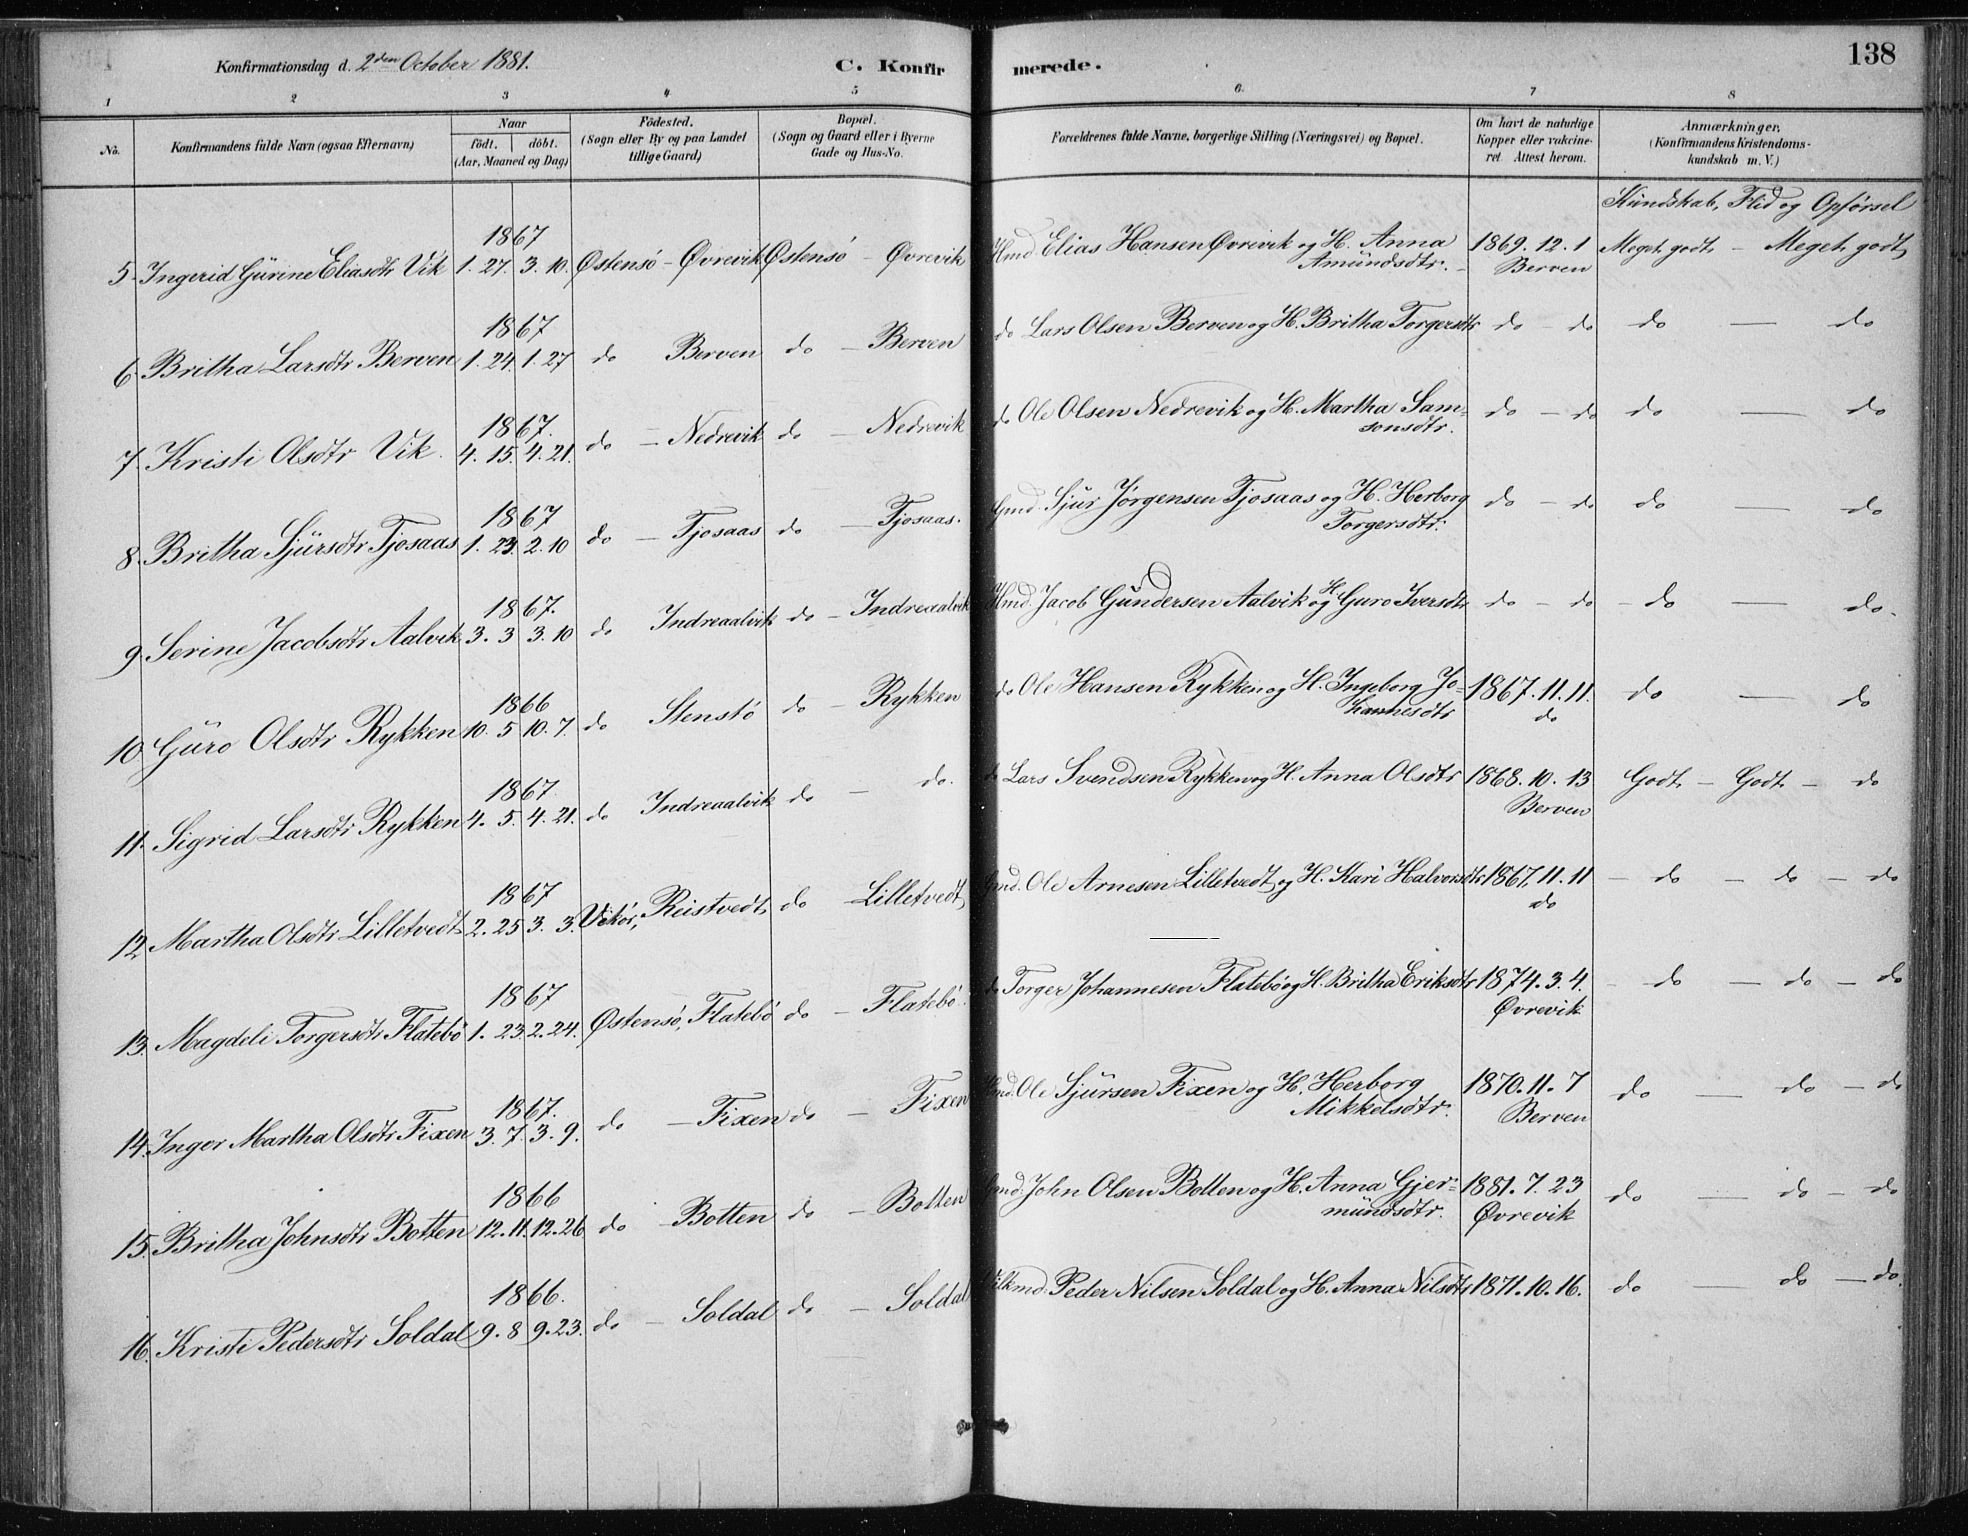 Konfirmationsdag d. 2den October 1881. C. Konfirmerede. 138
1 2 3 4 5 6. 7 8
No. Konfirmandens fulde Navn (ogsaa Efternavn) Naar født. døbt. (Aar, Maaned og Dag) Fødested. (Sogn eller By og paa Landet tillige Gaard) Bopæl. (Sogn og Gaard eller i Byerne Gade og Hus-No. Forældrenes fulde Navne, borgerlige Stilling (Næringsvei) og Bopæl. Om havt de naturlige Kopper eller vakcineret Attest herom. Anmærkninger. (Konfirmandens Kristendomskundskab m. V.)
Kundskab, Flid og Opførsel
5. Ingerid Gürine Eliasdtr Vik 1867 1. 27. 3. 10. Østensö - Øvrevik Østensö - Øvrevik Hmd Elias Hansen Øvrevik og H. Anna Amündsdtr. 1869. 12. 1 Berven Meget godt - Meget godt
6. Britha Larsdtr Berven 1867 1. 24. 1. 27 do Berven do - Berven do Lars Olsen Berven og H. Britha Torgersdtr do - do do - do
7. Kristi Olsdtr Vik. 1867. 4. 15. 4. 21. do - Nedrevik do - Nedrevik do Ole Olsen Nedrevik og H. Martha Samsonsdtr. do - do do - do
8. Britha Sjürsdtr Tjosaas 1867 1. 23. 2. 10 do - Tjosaas do - Tjosaas. Gmd. Sjur Jørgensen Tjosaas og H. Herborg Torgersdtr. do - do do - do
9. Serine Jacobsdtr Aalvik 1867. 3. 3 3. 10 do Indreaalvik do - Indreaalvik Hmd. Jacob Gündersen Aalvik og H. Guro Iversdtr do - do - do - do.
10. Güro Olsdtr Rykken 1866 10. 5 10. 7 do Stenstö do - Rykken do Ole Hansen Rykken og H. Ingeborg Johannesdtr 1867. 11. 11. do do - do
11. Sigrid Larsdtr Rykken 1867 4. 5. 4. 21. do Indreaalvik do - do. do Lars Svendsen Rykken og H. Anna Olsdtr 1868. 10. 13 Berven Godt - Godt - do
12. Martha Olsdtr Lilletvedt 1867 2. 25 3. 3. Vikör, Reistvedt do - Lilletvedt Gmd. Ole Arnesen Lilletvedt og H. Kari Halvorsdtr 1867. 11. 11 do - do - do - do
13. Magdeli Torgersdtr Flatebö 1867 1. 23. 2. 24. Østensö, Flatebö do - Flatebö. do Torger Johannesen Flatebö og H. Britha Eriksdtr 1874. 3. 4. Øvrevik - do - do - do
14. Inger Martha Olsdtr Fixen 1867. 3. 7. 3. 9. do - Fixen do - Fixen Hmd. Ole Sjürsen Fixen og H. Herborg Mikkelsdtr. 1870. 11. 7 Berven do - do - do
15. Britha Johnsdtr Botten 1866 12. 11. 12. 26 do - Botten do - Botten Gmd. John Olsen Botten og H. Anna Gjermündsdtr. 1881. 7. 23 Øvrevik do - do - do
16. Kristi Pedersdtr Soldal 1866. 9. 8 9. 23. do - Soldal do - Soldal Peder Nilsen Soldal og H. Anna Nilsdtr 1871. 10. 16. do - do - do.